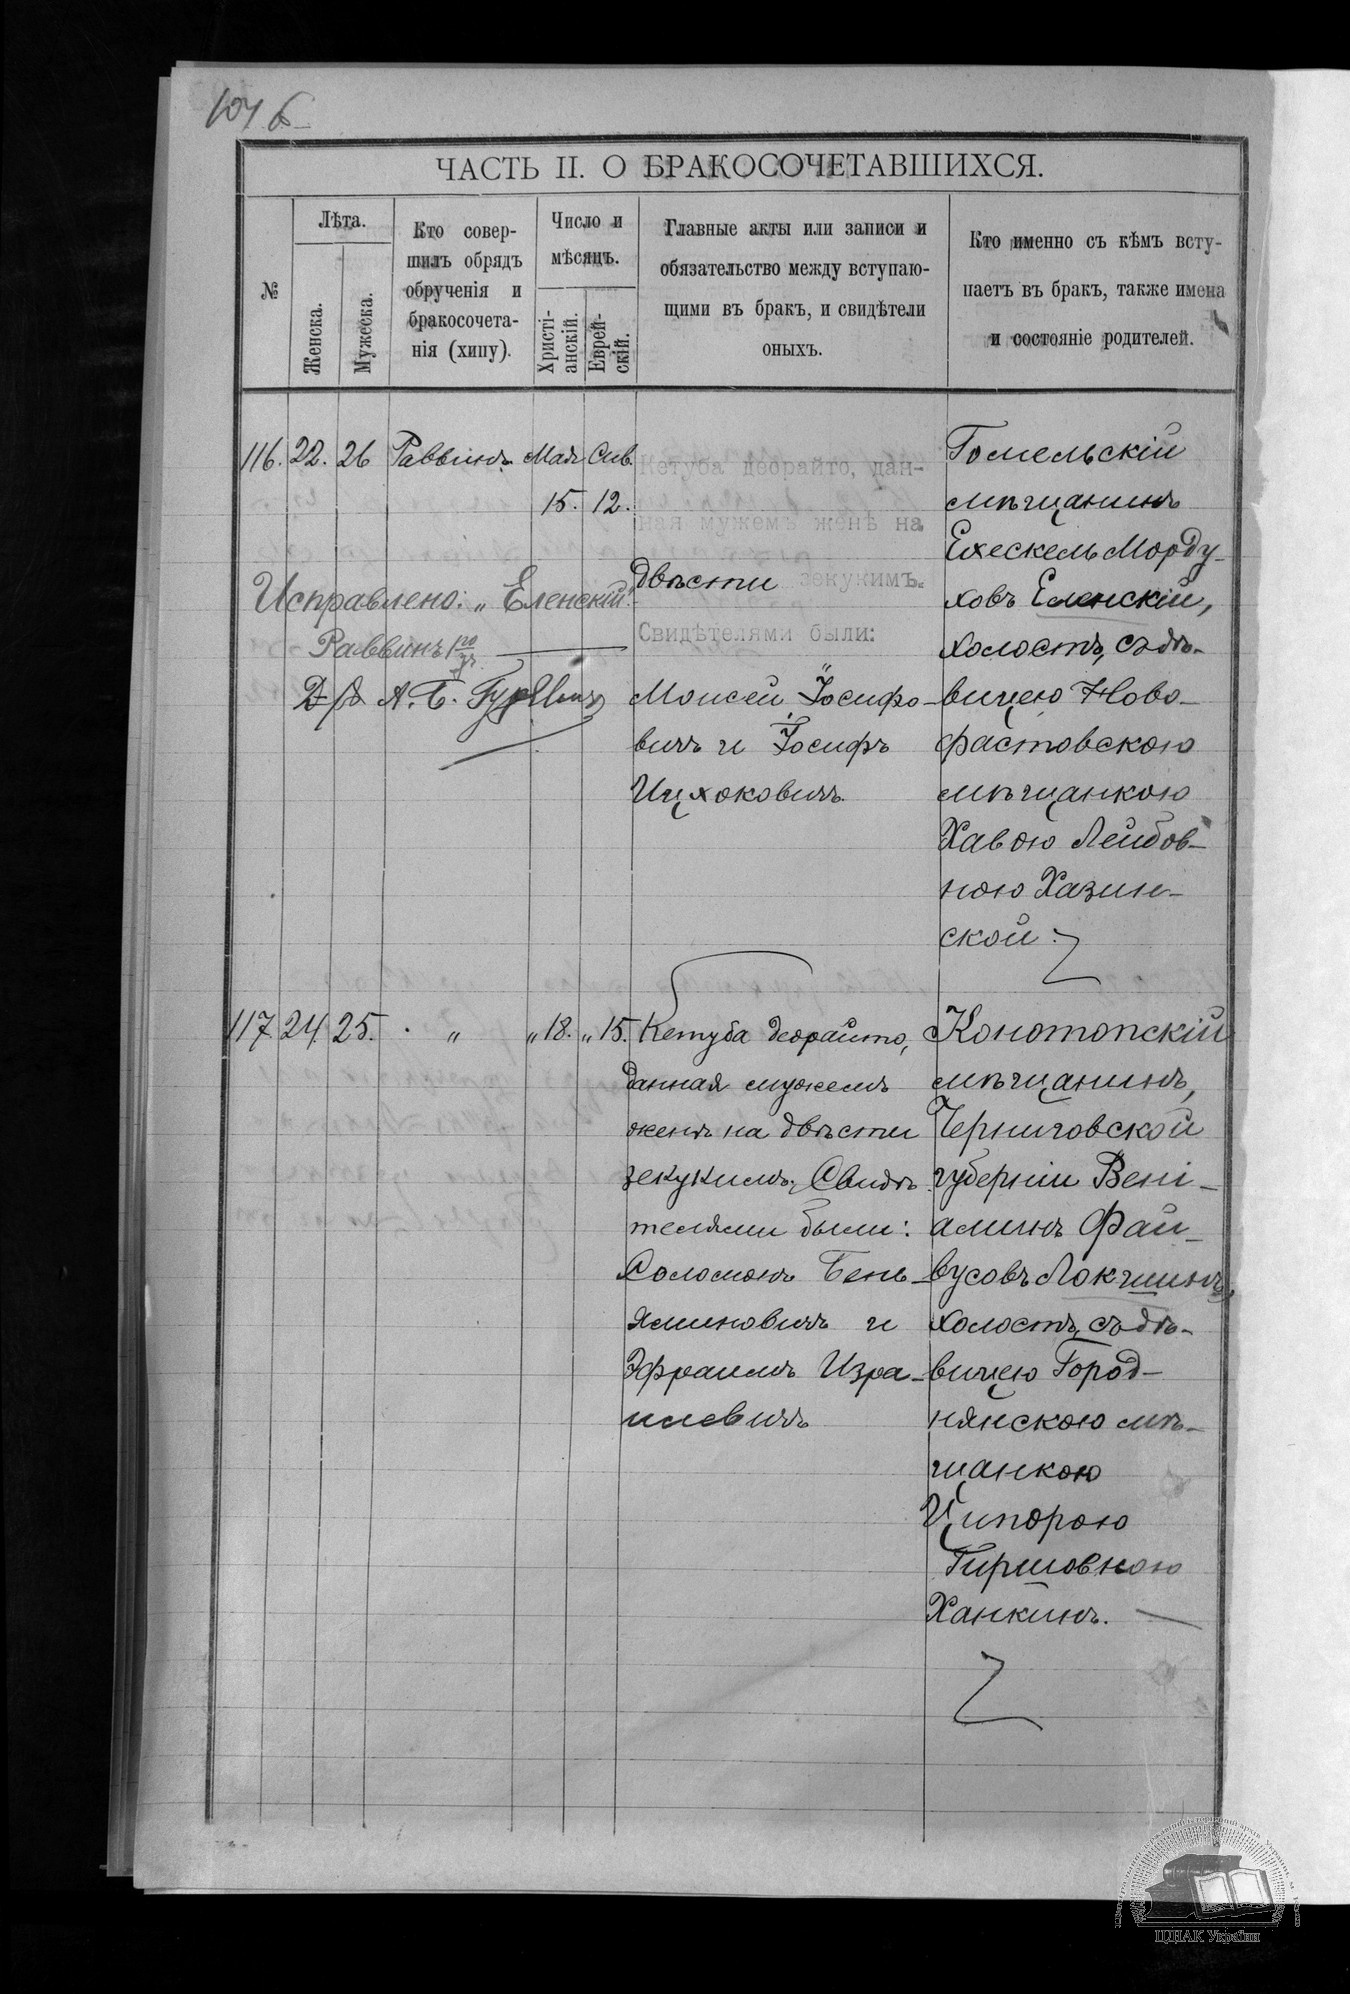 ЧАСТЬ II. О БРАКОСОЧЕТАВШИХСЯ.
№
Лѣта.
Женска.
Мужеска.
Кто совер-
шилъ обрядъ
обрученія и
бракосочета-
нія (хипу).
Число и
мѣсяцъ.
Христі-
анскій.
Еврей-
скій.
Главные акты или записи и
обязательство между вступаю-
щими въ бракъ, и свидѣтели
оныхъ.
Кто именно съ кѣмъ всту-
паетъ въ бракъ, также имена
и состояніе родителей.
116. 22. 26 Раввинъ. Мая Сив.
15. 12.
Кетуба деорайто, дан-
ная мужемъ женѣ на
двѣсти зекукимъ.
Свидѣтелями были:
Моисей Іосифо-
вичъ и Іосифъ
Ицхоковичъ.
Гомельскій
мѣщанинъ
Ехескель Морду-
ховъ Еленскій,
холостъ, съ дѣ-
вицею Ново-
фастовскою
мѣщанкою
Хавою Лейбов-
ною Хазин-
ской.
Исправлено: „Еленскій".
Раввинъ
А. Б. Гуревичъ
117 24. 25. „ „ 18. „ 15.
Кетуба деорайто,
данная мужемъ
женѣ на двѣсти
зекукимъ. Свидѣ
телями были:
Соломонъ Бень-
яминовичъ и
Эфраимъ Изра-
илевичъ
Конотопскій
мѣщанинъ,
Черниговской
губерніи Вені-
аминъ Фай-
вусовъ Локшинъ,
холостъ, съ дѣ-
вицею Город-
нянскою мѣ-
щанкою
Ципорою
Гиршовною
Ханкинъ.
ЦДІАК України